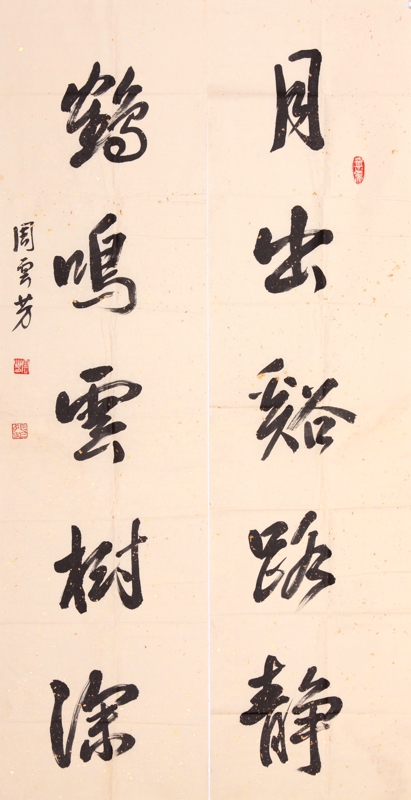 月出谿路静
鶴鳴雲樹深
周雲芳